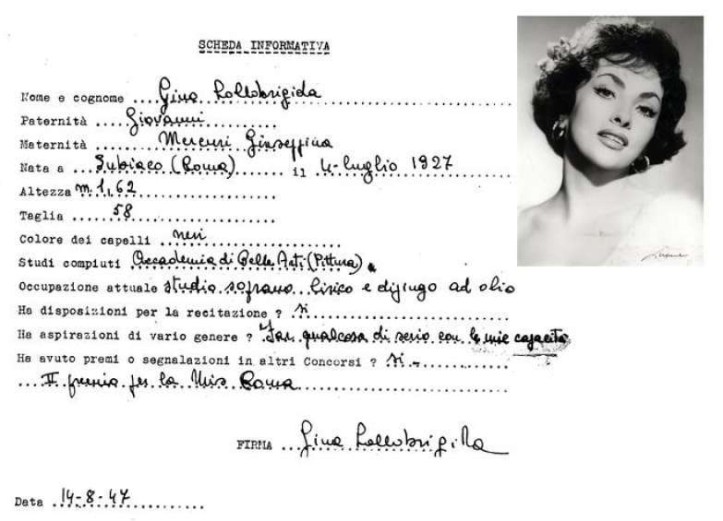 SCHEDA INFORMATIVA
Nome e cognome ....Gina Lollobrigida
Paternità .....Giovanni
Maternità ..... Mercuri Giuseppina
Nata a ....Subiaco (Roma) il 4 luglio 1927
Altezza m. 1,62
Taglia ..... 58
Colore dei capelli .. neri
Studi compiuti Accademia di Belle Arti (Pittura).
Occupazione attuale studio soprano lirico e dipingo ad olio
Ha disposizioni per la recitazione ? si
Ha aspirazioni di vario genere ? "Far qualcosa di serio con le mie capacità
Ha avuto premi o segnalazioni in altri Concorsi ? si -
... II premio per la Miss Roma
FIRMA ... Gina Lollobrigida
Data 14-8-47